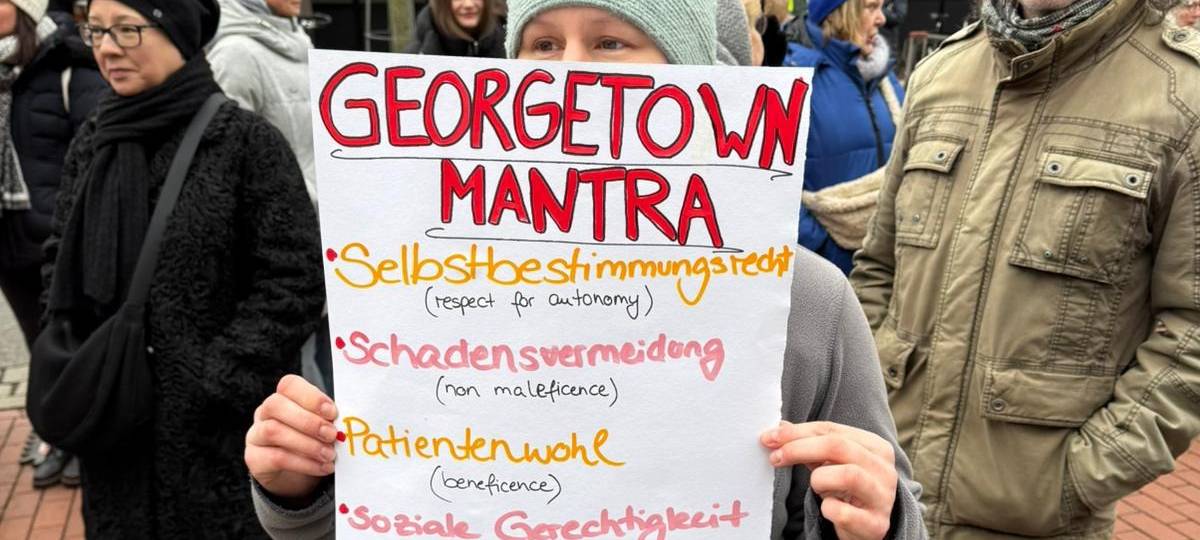 GEORGETOWN
MANTRA
• Selbstbestimmungsrecht
(respect for autonomy)
• Schadensvermeidung
(non maleficence)
• Patientenwohl
(beneficence)
• soziale Gerechtigkeit